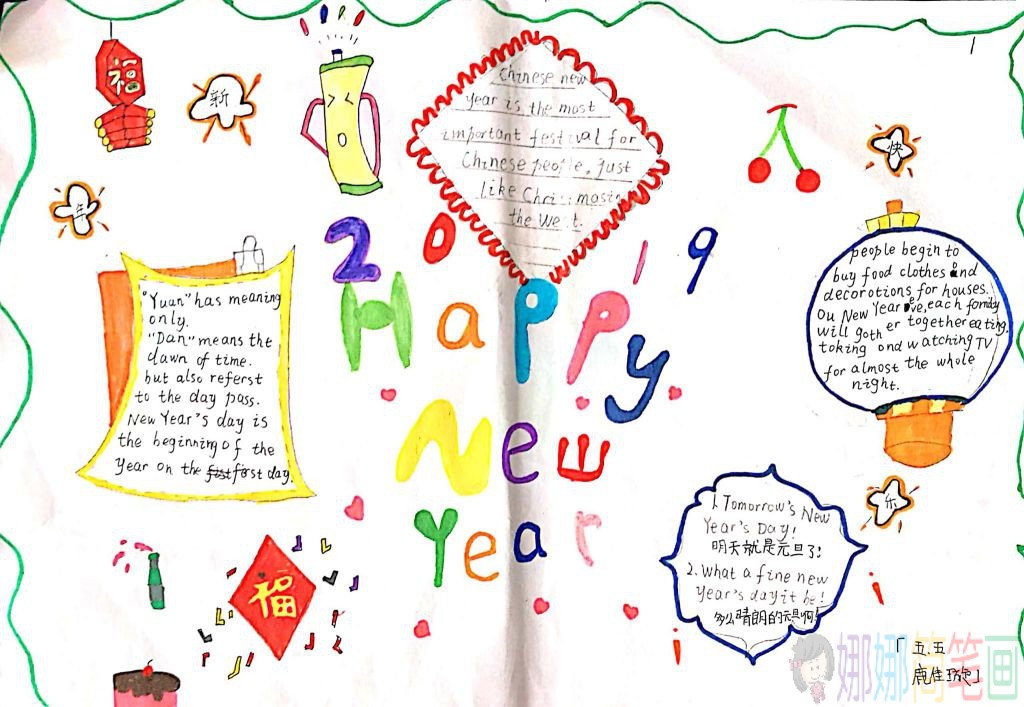 福
新
年
快
乐
Chinese new
year is the most
important festival for
Chinese people, just
like Christmas in
the West.
2019
Happy
New
Year
"Yuan" has meaning
only.
"Dan" means the
dawn of time.
but also referst
to the day pass.
New Year's day is
the beginning of the
Year on the first day.
people begin to
buy food clothes and
decorotions for houses.
Ou New Year eve, each fomily
will goth er together eating.
toking ond watching TV
for almost the whole
night.
1. Tomorrow's New
Year's Day!
明天就是元旦了!
2. What a fine new
year's day it be!
多么晴朗的元旦啊!
福
「五.五
鹿佳璇」
娜娜简笔画